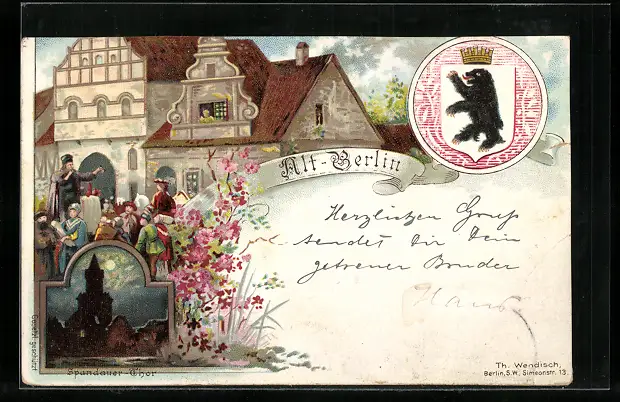 Alt-Berlin
Herzlichen Gruß
sendet Dir Dein
getreuer Bruder
Hans
Gesetzl. geschützt
Spandauer-Thor
Th. Wendisch,
Berlin, S.W. Simeonstr. 13.